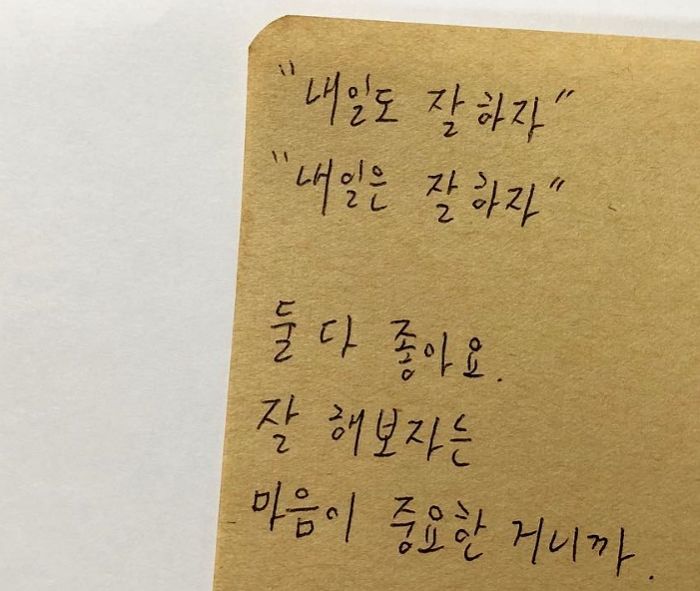 "내일도 잘하자"
"내일은 잘하자"
둘 다 좋아요.
잘 해보자는
마음이 중요한 거니까.